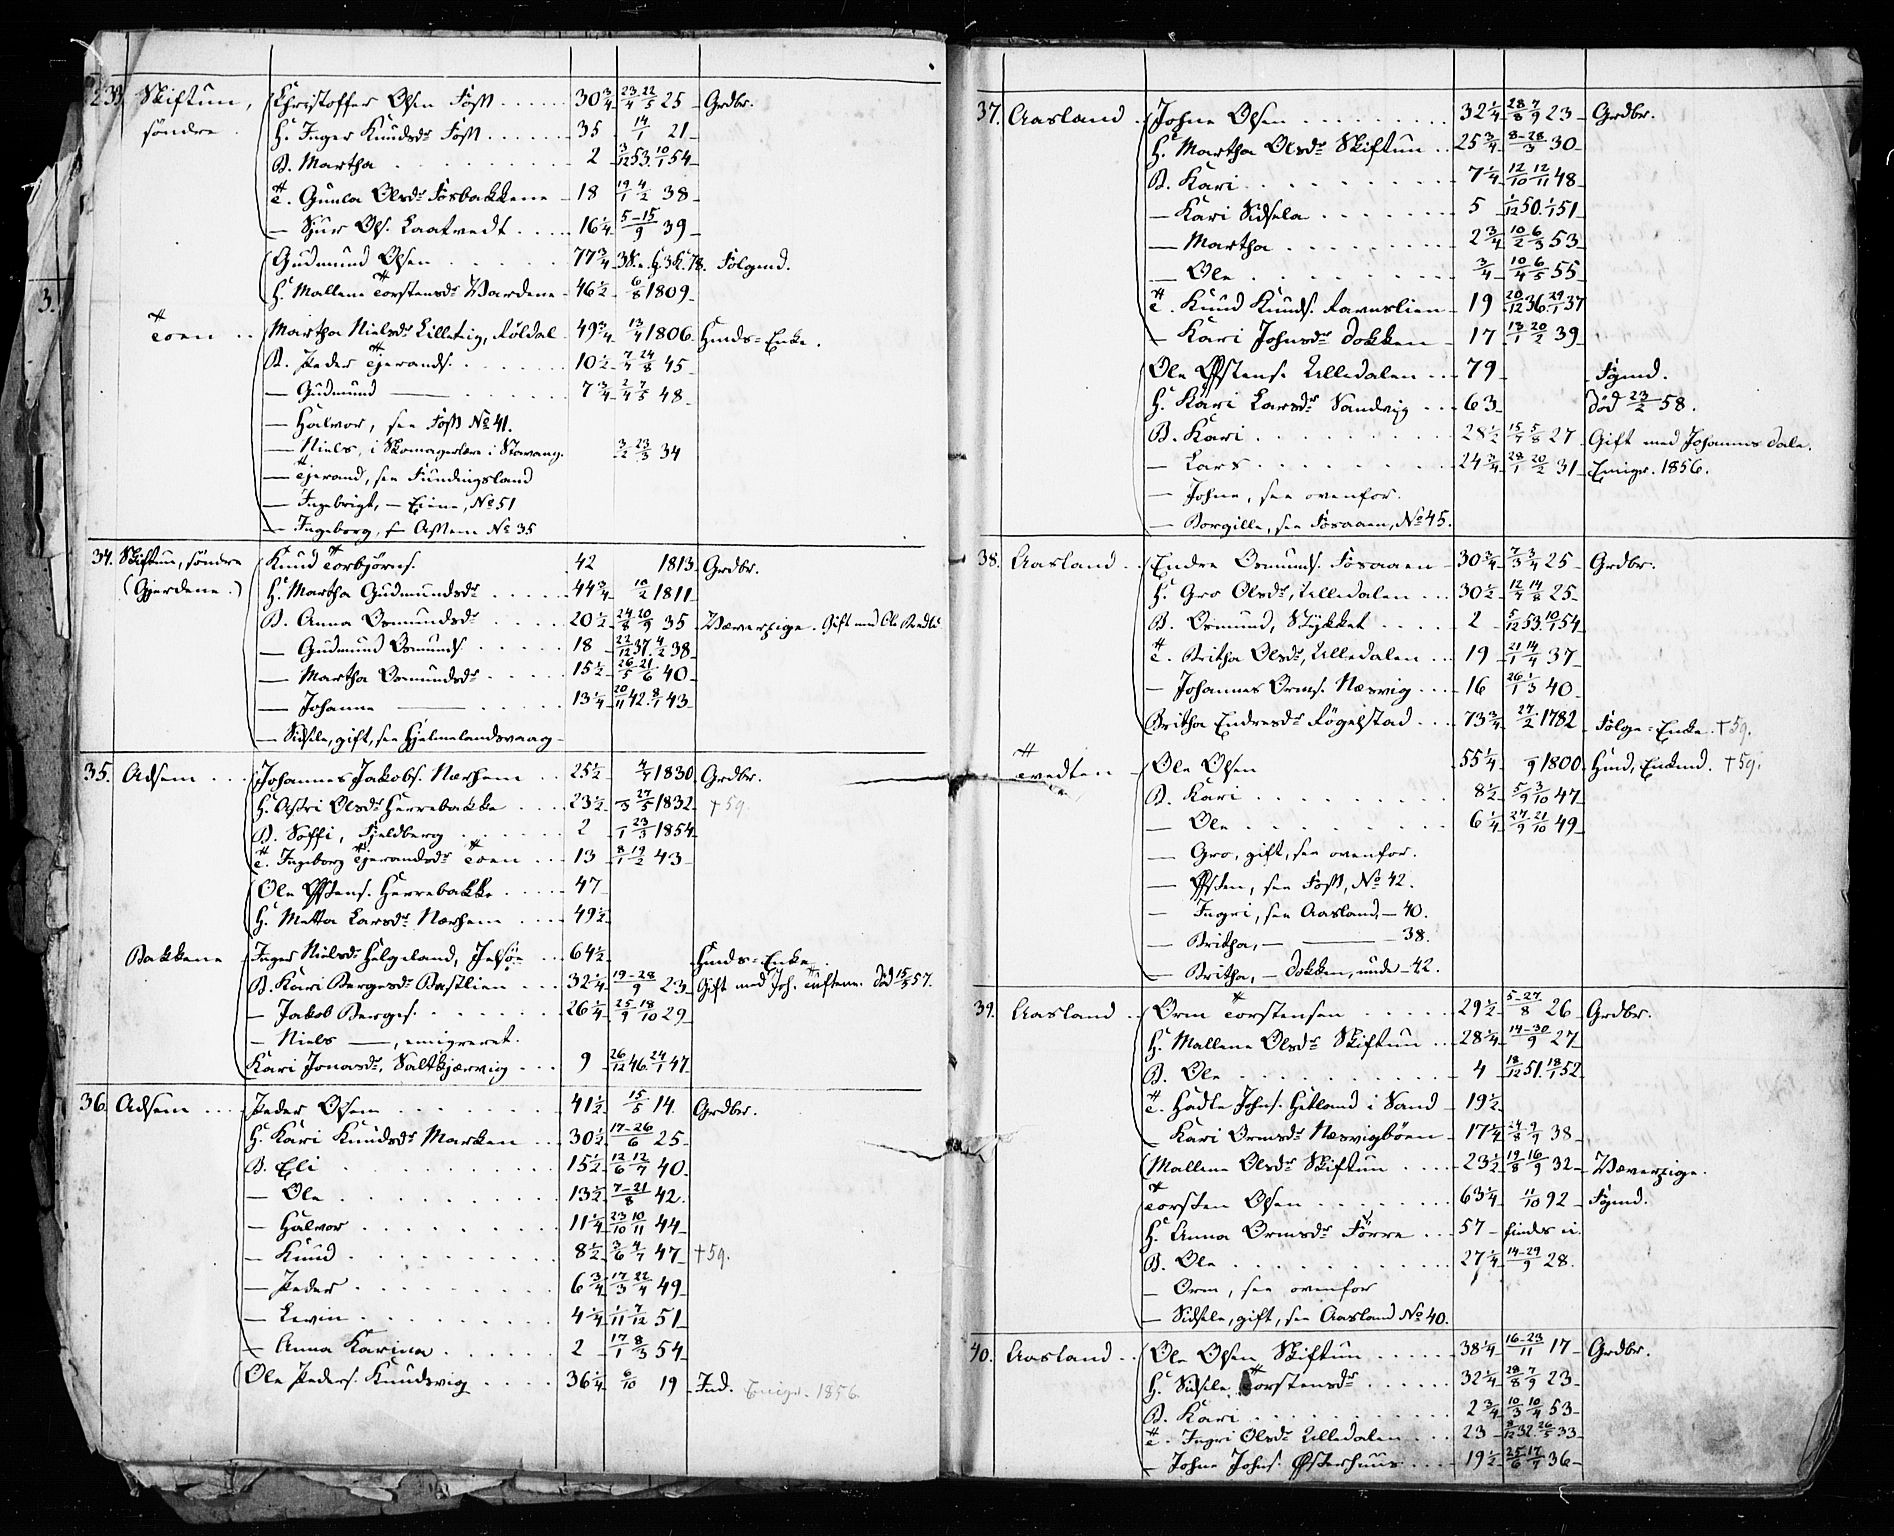 33. Skiftun, Christoffer Olsen Foss 30 3/4 23/4 22/5 25 Grdbr.
søndre. H. Inger Knudsdr Foss 35 14/1 21
B. Martha 2 3/12 53. 10/1 54
T. Gunla Olsdr Fosbakkene 18 19/1 4/2 38
— Sjur Ols. Laatvedt 16 1/4 5-15/9 39
Gudmund Olsen 77 3/4 Folgmd.
H. Mallene Torstensdr Vardene 46 1/2 6/8 1809
Toen Martha Nielsdr Lilletig, Röldal 49 3/4 13/4 1806 Huuds-Enke.
B. Peder Tjerands. 10 1/2 7/7 24/8 45
— Gudmund — 7 3/4 2/4 7/5 48
— Halvor, see Foss No 41.
— Niels, i Skomagerlære i Stavang. 3/2 23/3 34
— Tjerand, see Fundingsland
— Ingebrigt, — Eiene, No 51
— Ingeborg, — Adsem No 35
34. Skiftun, søndre Knud Torbjörns. 42 1813 Grdbr.
(Gjerdene.) H. Martha Gudmundsdr 44 3/4 10/2 1811
B. Anna Osmundsdr 20 1/2 24/8 20/9 35 Væverpige. Gift med Ole
— Gudmund Osmunds. 18 22/12 37. 4/2 38
— Martha Osmundsdr 15 1/2 26/5 21/6 40
— Johanna — 13 1/4 20/11 42. 8/1 43
— Sidsele, gift, see Hjelmelandsvaag
35. Adsem Johannes Jakobs. Nærhem 25 1/2 4/7 1830 Grdbr.
H. Astri Olsdr Herrebakke 23 1/2 27/5 1832 † 59.
B. Soffi, Fjeldberg 2 1/1 23/3 1854
T. Ingeborg Tjerandsdr Toen 13 8/1 19/2 43
Ole Østens. Herrebakke 47
H. Metta Larsdr Nærhem 49 1/2
Bakkene Inger Nielsdr Helgeland, Jelsöe 64 1/2 Huuds-Enke.
B. Kari Bergesdr Bastlien 32 1/4 19-28/9 23 Gift med Joh. Tuftene. Död 15/5 57.
— Jakob Berges. 26 1/4 25/9 18/10 29
— Niels —, emigreret.
Kari Jonasdr, Saltkjærvig 9 26/12 46. 24/1 47
36. Adsem Peder Olsen 41 1/2 15/5 14. Grdbr.
H. Kari Knudsdr Marken 30 1/2 17-26/6 25
B. Eli 15 1/2 12/6 12/7 40
— Ole 13 1/2 7-21/8 42.
— Halvor 11 1/4 23/10 10/11 44
— Knud 8 1/2 3/6 4/7 47 † 59.
— Peder 6 3/4 17/3 22/4 49
— Levin 4 1/4 1/11 7/12 51
— Anna Karina 2 17/1 8/3 54
Ole Peders. Knudsvig 36 1/4 6/10 19 Ind. Emigr. 1856
37. Aasland Johne Olsen 32 1/4 28/8 7/9 23 Grdbr.
H. Martha Olsdr Skiftun 25 3/4 8-28/3 30
B. Kari 7 1/4 12/10 12/11 48
— Kari Sidsela 5 1/12 50. 1/1 51
— Martha 2 3/4 10/2 6/3 53
— Ole 3/4 10/4 6/5 55
T. Knud Knuds. Ravnslien 19 20/12 36. 29/1 37
— Kari Johnsdr Dokken 17 13/1 20/2 39
Ole Østens. Ulledalen 79 Fgmd.
H. Kari Larsdr Sandvig 63 Död 23/2 58.
B. Kari 28 1/2 15/7 5/8 27 Gift med Johannes Dale.
— Lars 24 3/4 28/1 20/2 31 Emigr. 1856.
— Johne, see ovenfor.
— Borgille, see Fosaaen, No 45.
38. Aasland Endre Osmunds. Fosaaen 30 3/4 7/3 3/4 25 Grdbr.
H. Gro Olsdr, Ulledalen 30 1/2 12/7 14/8 25
B. Osmund, Stykket 2 5/12 53. 10/1 54
T. Britha Olsdr, Ulledalen 19 21/1 14/4 37
— Johannes Orms. Næsvig 16 26/1 1/3 40
Britha Endresdr Fögelstad 73 3/4 27/2 1782 Folge-Enke. † 59.
Tvedten Ole Olsen 55 1/4 /9 1800 Huud, Enkmd. † 59.
B. Kari 8 1/2 5/9 3/10 47
— Ole 6 1/4 27/9 21/10 49
— Gro, gift, see ovenfor.
— Østen, see Foss, No 42.
— Ingri, see Aasland, — 40.
— Britha, — — — 38.
— Britha, — Dokken, unde — 42.
39. Aasland Orm Torstensen 29 1/2 5-27/8 26 Grdbr.
H. Mallene Olsdr Skiftun 28 1/4 14-30/9 27
B. Ole 4 18/12 51. 18/1 52
T. Hadle Johns. Hetland i Sand 19 1/2
— Kari Ormsdr Næsvigbøen 17 1/4 24/8 9/9 38
Mallene Olsdr Skiftun 23 1/2 19/8 16/9 32 Væverpige.
Torsten Olsen 63 1/4 11/10 92 Fgmd.
H. Anna Ormsdr Förre 57 findes ei.
B. Ole 27 1/4 14-29/9 28.
— Orm, see ovenfor
— Sidsele, gift, see Aasland No 40.
40. Aasland Ole Olsen Skiftun 38 1/4 16-23/11 17 Grdbr.
H. Sidsele Torstensdr 32 1/4 28/8 7/9 23
B. Kari 2 3/4 10/3 10/4 53
T. Ingri Olsdr Ulledalen 23 8/12 32. 26/5 33
— Johne Johns. Østerhuus 19 1/2 25/6 17/7 36